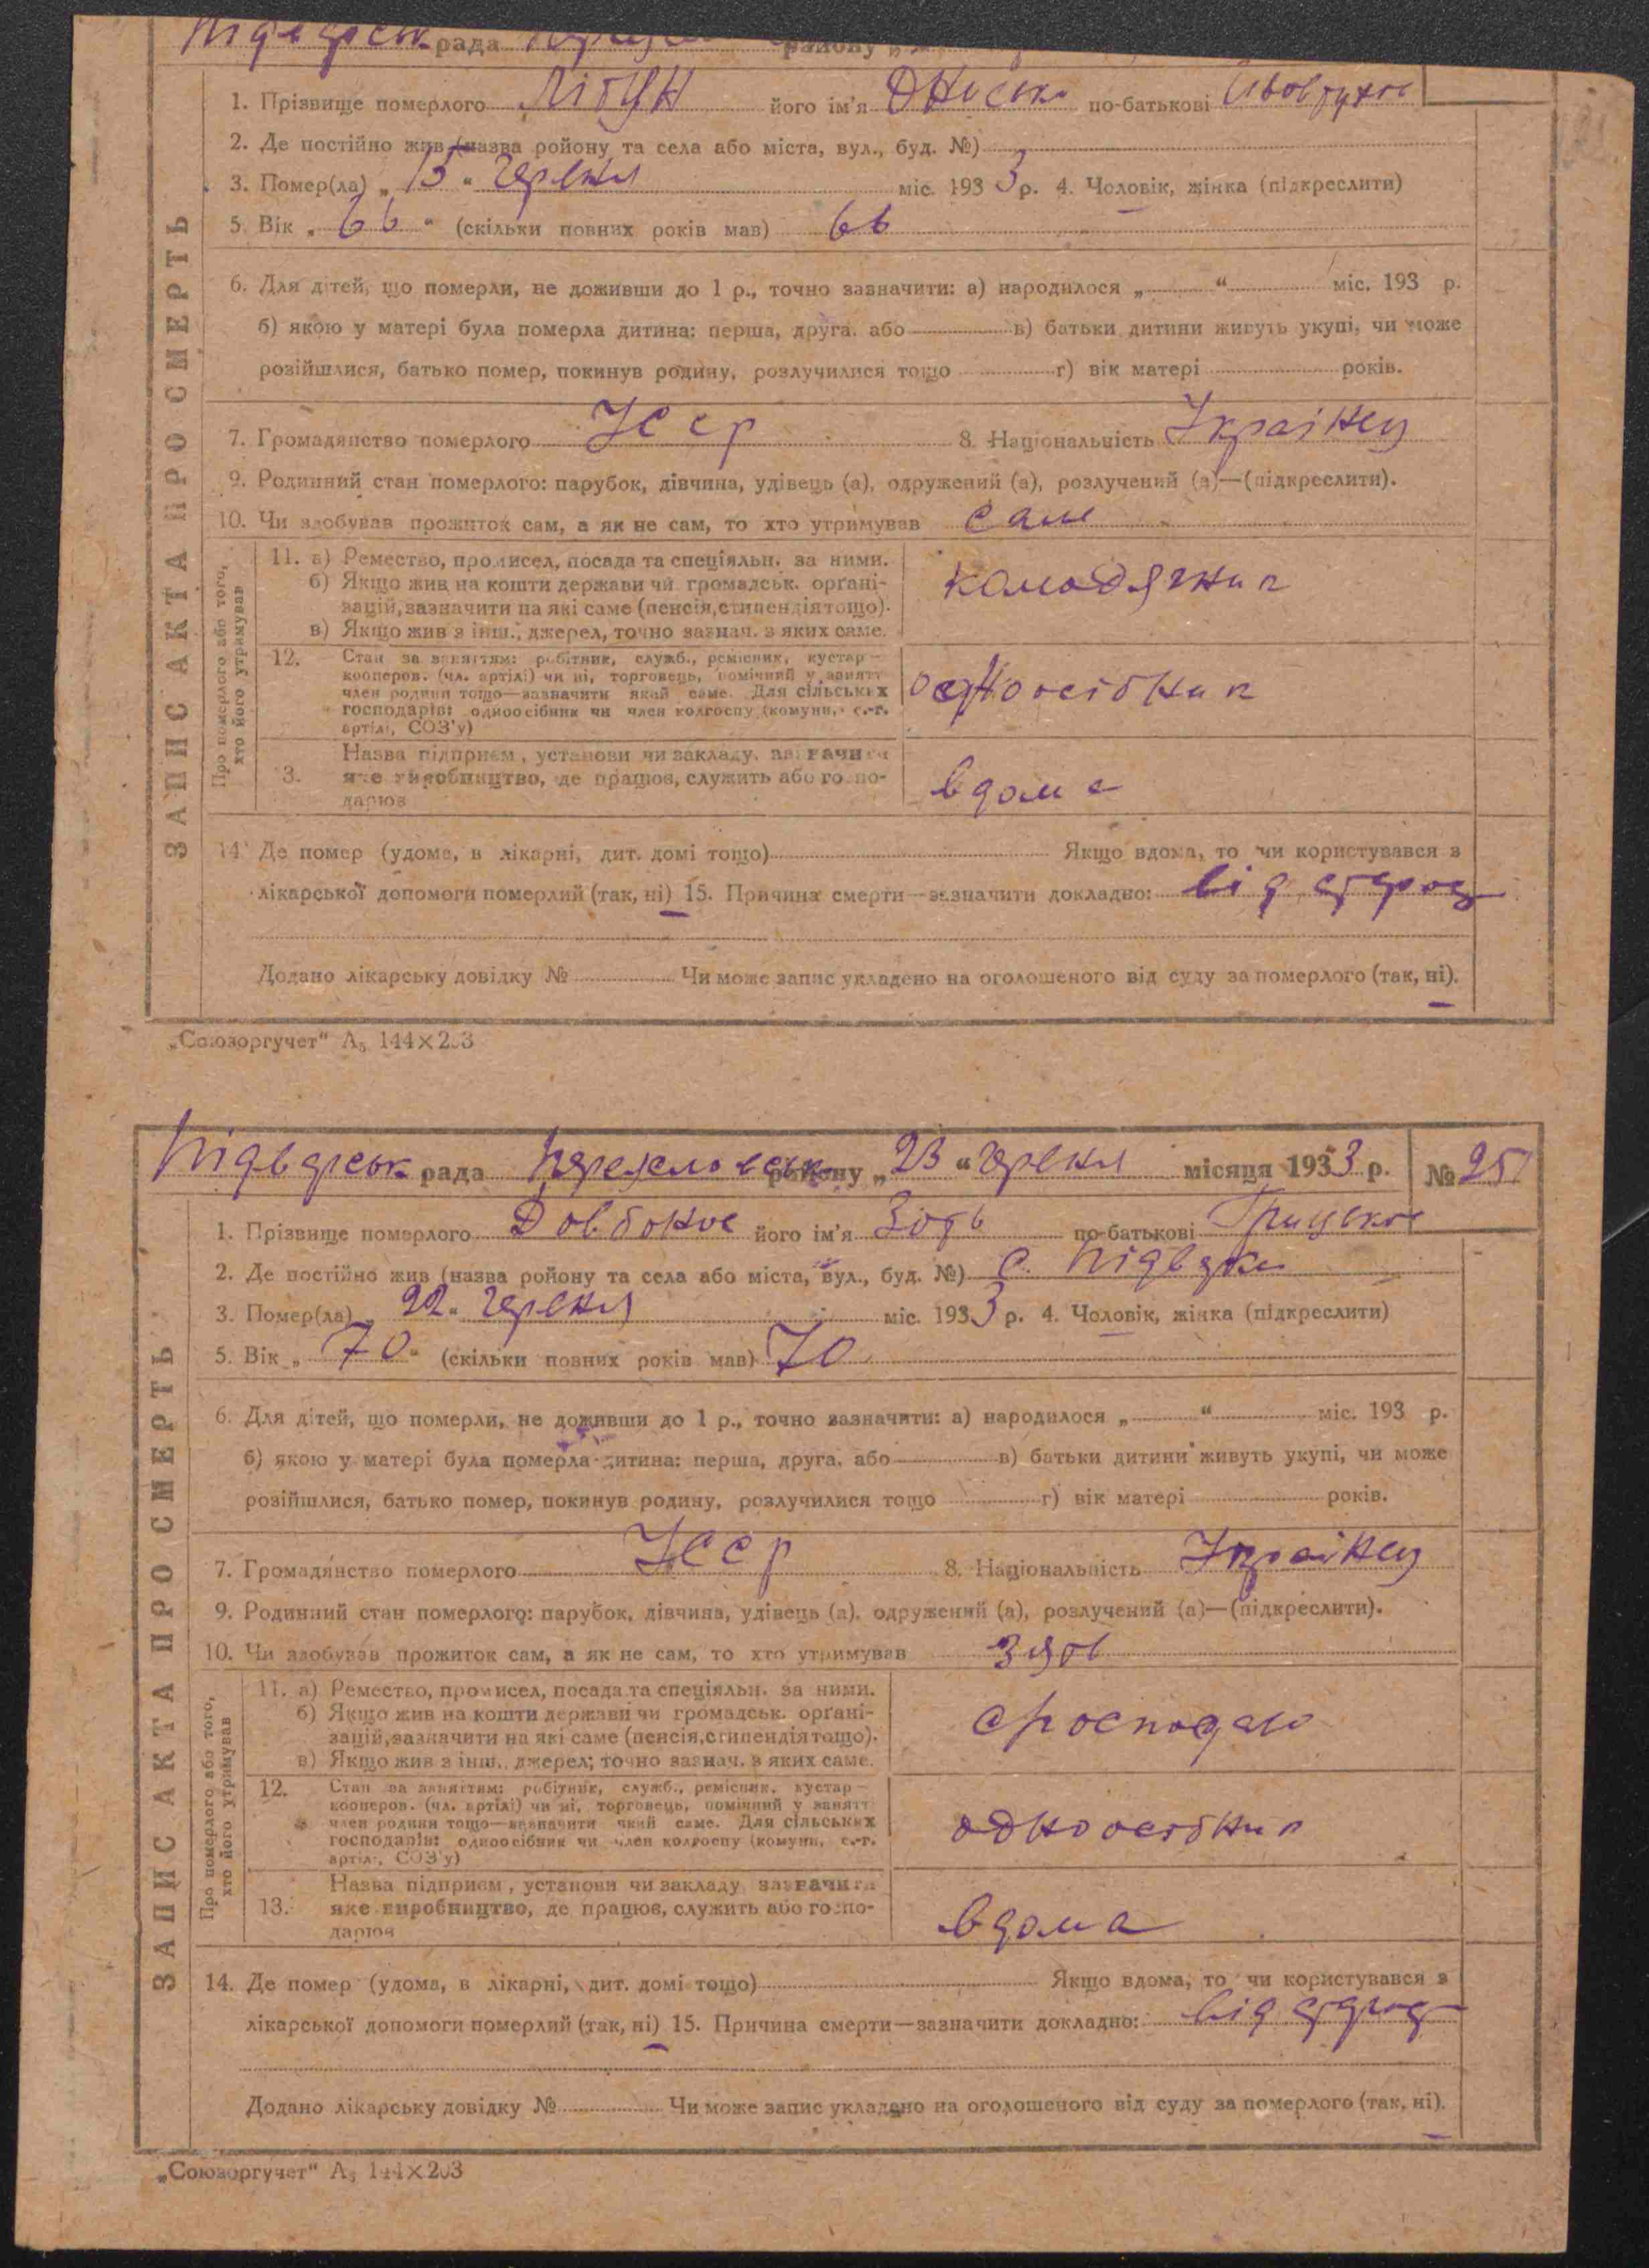 Підварськ рада району „
1. Прізвище померлого Лібун його ім'я Ониско по-батькові
2. Де постійно жив (назва ройону та села або міста, вул., буд. №)
3. Помер(ла) „15“ червня міс. 1933 р. 4. Чоловік, жінка (підкреслити)
5. Вік „66“ (скільки повних років мав) 66
6. Для дітей, що померли, не доживши до 1 р., точно зазначити: а) народилося „ “ міс. 193 р.
б) якою у матері була померла дитина: перша, друга, або в) батьки дитини живуть укупі, чи може
розійшлися, батько помер, покинув родину, розлучилися тощо г) вік матері років.
7. Громадянство померлого Усср 8. Національність Українец
9. Родинний стан померлого: парубок, дівчина, удівець (а), одружений (а), розлучений (а)—(підкреслити).
10. Чи здобував прожиток сам, а як не сам, то хто утримував сам
ЗАПИС АКТА ПРО СМЕРТЬ
Про померлого або того,
хто його утримував
11. а) Ремество, промисел, посада та спеціяльн. за ними.
б) Якщо жив на кошти держави чи громадськ. орґані-
зацій, зазначити на які саме (пенсія, стипендія тощо).
в) Якщо жив з інш., джерел, точно зазнач. з яких саме.
колодяжник
12. Стан за заняттям: робітник, служб., ремісник, кустар—
кооперов. (чл. артілі) чи ні, торговець, помічний у занятт
член родини тощо—зазначити який саме. Для сільських
господарів: одноосібник чи член колгоспу (комуни, с.-г.
артілі, СОЗ'у)
одноосібник
3. Назва підприєм, установи чи закладу, зазначити
яке виробництво, де працює, служить або госпо-
дарює
вдома
14 Де помер (удома, в лікарні, дит. домі тощо) Якщо вдома, то чи користувався з
лікарської допомоги померлий (так, ні) 15. Причина смерти—зазначити докладно: від старощ
Додано лікарську довідку № Чи може запис укладено на оголошеного від суду за померлого (так, ні).
„Союзоргучет“ А5 144×203
Підварськ рада Переяславськ району „23“ червня місяця 1933 р. № 251
1. Прізвище померлого Довбонос його ім'я Зоть по-батькові Грицькос
2. Де постійно жив (назва ройону та села або міста, вул., буд. №) с. Підварки
3. Помер(ла) „22“ червня міс. 1933 р. 4. Чоловік, жінка (підкреслити)
5. Вік „70“ (скільки повних років мав) 70
6. Для дітей, що померли, не доживши до 1 р., точно зазначити: а) народилося „ “ міс. 193 р.
б) якою у матері була померла дитина: перша, друга, або в) батьки дитини живуть укупі, чи може
розійшлися, батько помер, покинув родину, розлучилися тощо г) вік матері років.
7. Громадянство померлого Усср 8. Національність Українец
9. Родинний стан померлого: парубок, дівчина, удівець (а), одружений (а), розлучений (а)—(підкреслити).
10. Чи здобував прожиток сам, а як не сам, то хто утримував зять
ЗАПИС АКТА ПРО СМЕРТЬ
Про померлого або того,
хто його утримував
11. а) Ремество, промисел, посада та спеціяльн. за ними.
б) Якщо жив на кошти держави чи громадськ. орґані-
зацій, зазначити на які саме (пенсія, стипендія тощо).
в) Якщо жив з інш., джерел, точно зазнач. з яких саме.
12. Стан за заняттям: робітник, служб., ремісник, кустар—
кооперов. (чл. артілі) чи ні, торговець, помічний у занятт
член родини тощо—зазначити який саме. Для сільських
господарів: одноосібник чи член колгоспу (комуни, с.-г.
артілі, СОЗ'у)
одноосібник
13. Назва підприєм, установи чи закладу зазначити
яке виробництво, де працює, служить або госпо-
дарює
вдома
14. Де помер (удома, в лікарні, дит. домі тощо) Якщо вдома, то чи користувався з
лікарської допомоги померлий (так, ні) 15. Причина смерти—зазначити докладно: від старощ
Додано лікарську довідку № Чи може запис укладено на оголошеного від суду за померлого (так, ні).
„Союзоргучет“ А5 144×203